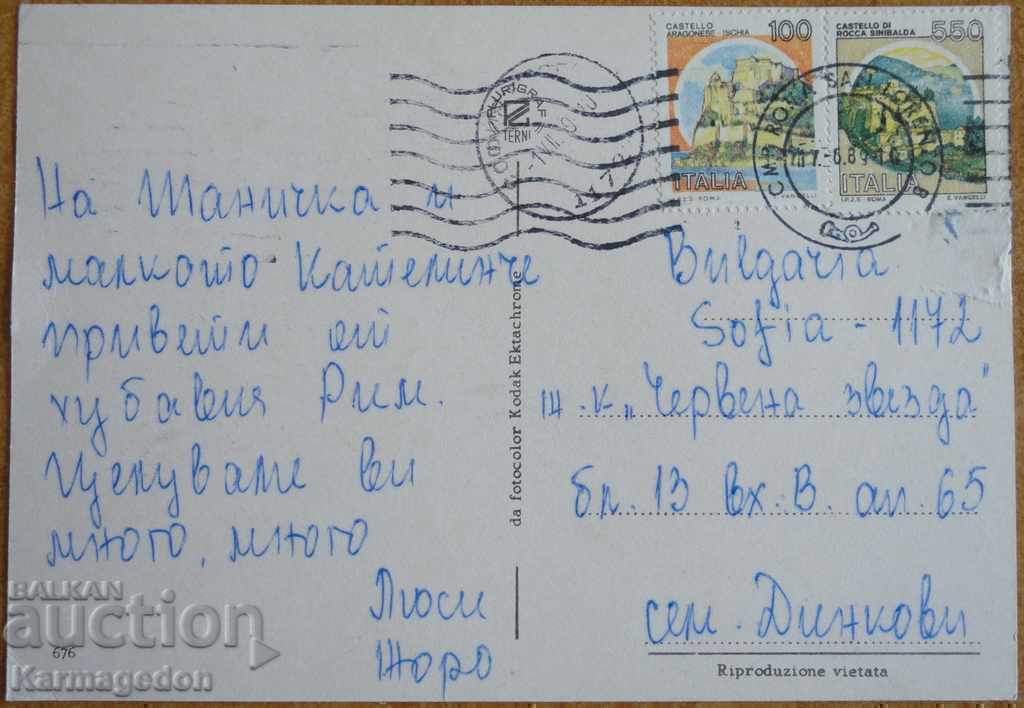 На Таничка и
малкото Кателинче
привети от
хубавия Рим.
Целуваме ви
много, много
Люси
Жоро
676
da fotocolor Kodak Ektachrome
PLURIGRAF
TERNI
CASTELLO
ARAGONESE - ISCHIA
100
ITALIA
I.P.Z.S. ROMA
E. VANGELLI
CASTELLO DI
ROCCA SINIBALDA
550
ITALIA
I.P.Z.S. - ROMA
E. VANGELLI
CMP ROMA SAN LORENZO B
Bulgaria
Sofia - 1172
ж.к „Червена звезда"
бл. 13 вх. В. ап. 65
сем. Динкови
Riproduzione vietata
BALKAN
auction
Karmagedon